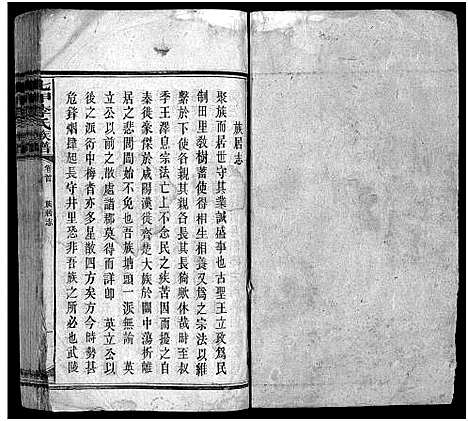 族居志
聚族而居世守其業誠盛事也古聖王立政為民
制田里敎樹蓄使各相生相養又為之宗法以維
繫於下使各親其親各長其長猗歟休哉時至叔
季王澤息宗法亡上不念民之疾苦困於擾攘
秦徙豪傑於咸陽漢徙齊楚大族於關中蕩析離
居之悲間間始不免也吾族塘頭一派無論 英
立公以前之遷諸那莫得而詳卽 英立公以
後之派衍中梅者亦星散四方矣方今時勢甚
危鋒烟肆起長守井里恐非吾族之所必也武陵
七甲李氏族譜
卷首
族居志